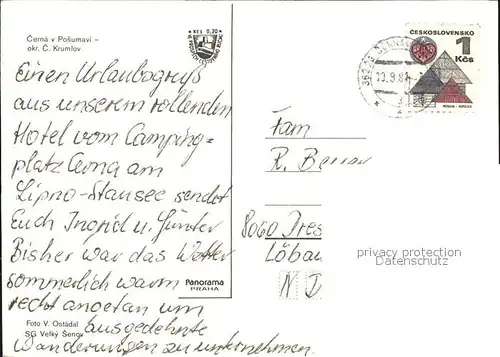 Černá v Pošumaví –
okr. Č. Krumlov
Kčs 0,20
Einen Urlaubsgruß
aus unserem rollenden
Hotel vom Camping=
platz Cerna am
Lipno-Stausee sendet
Euch Ingrid u. Günter
Bisher war das Wetter
sommerlich warm
recht angetan um
ausgedehnte
Wanderungen zu unternehmen.
Panorama
PRAHA
Foto V. Ostádal
SG Velký Šenov
ČESKOSLOVENSKO
1
Kčs
Fam
R.
8060 Dres
Löbau
N D
privacy protection
Datenschutz